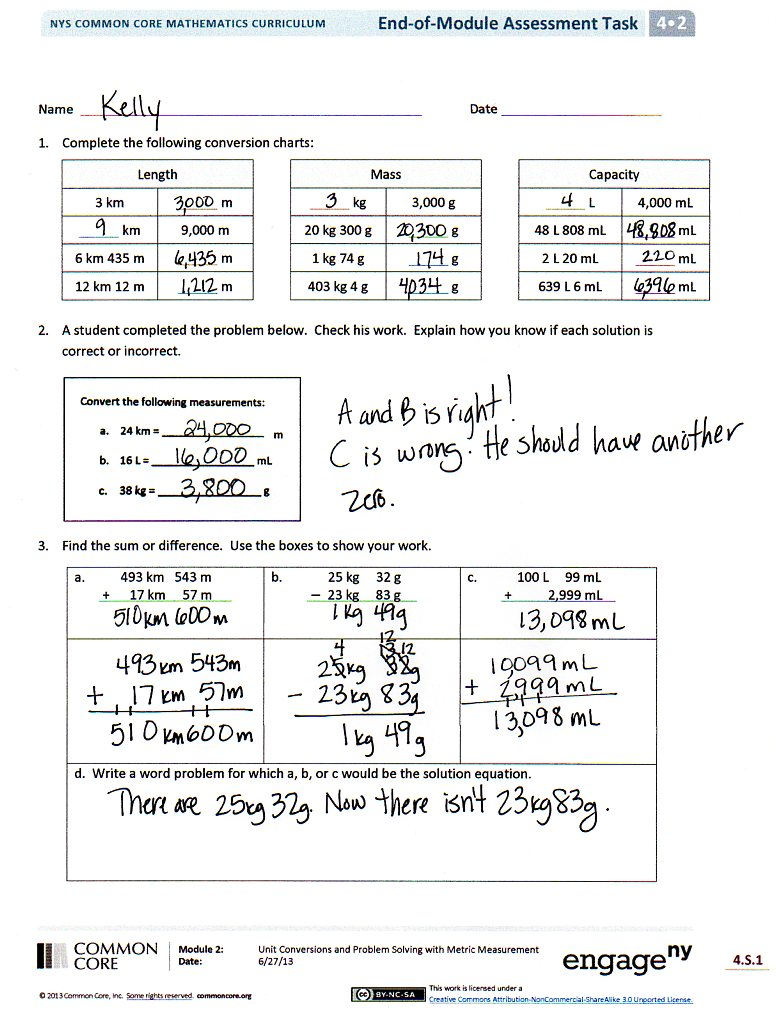 NYS COMMON CORE MATHEMATICS CURRICULUM End-of-Module Assessment Task 4•2
Name Kelly Date
1. Complete the following conversion charts:
Length
3 km 3,000 m
9 km 9,000 m
6 km 435 m 6,435 m
12 km 12 m 1,212 m
Mass
3 kg 3,000 g
20 kg 300 g 20,300 g
1 kg 74 g 174 g
403 kg 4 g 4034 g
Capacity
4 L 4,000 mL
48 L 808 mL 48,808 mL
2 L 20 mL 220 mL
639 L 6 mL 6396 mL
2. A student completed the problem below. Check his work. Explain how you know if each solution is
correct or incorrect.
Convert the following measurements:
a. 24 km = 24,000 m
b. 16 L = 16,000 mL
c. 38 kg = 3,800 g
A and B is right!
C is wrong. He should have another
zero.
3. Find the sum or difference. Use the boxes to show your work.
a. 493 km 543 m
+ 17 km 57 m
510 km 600 m
493 km 543 m
+ 17 km 57 m
510 km 600 m
b. 25 kg 32 g
− 23 kg 83 g
1 kg 49 g
12
4 13 12
25 kg 32 g
− 23 kg 83 g
1 kg 49 g
c. 100 L 99 mL
+ 2,999 mL
13,098 mL
10099 mL
+ 2999 mL
13,098 mL
d. Write a word problem for which a, b, or c would be the solution equation.
There are 25kg 32g. Now there isn't 23kg 83g.
COMMON CORE
Module 2: Unit Conversions and Problem Solving with Metric Measurement
Date: 6/27/13
engage ny
4.S.1
© 2013 Common Core, Inc. Some rights reserved. commoncore.org
cc BY-NC-SA
This work is licensed under a
Creative Commons Attribution-NonCommercial-ShareAlike 3.0 Unported License.